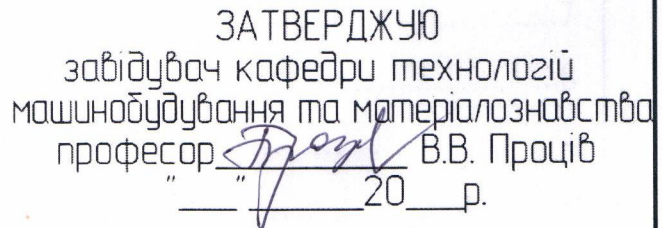 ЗАТВЕРДЖУЮ
завідувач кафедри технологій
машинобудування та матеріалознавства
професор__________ В.В. Проців
"___"______20___р.